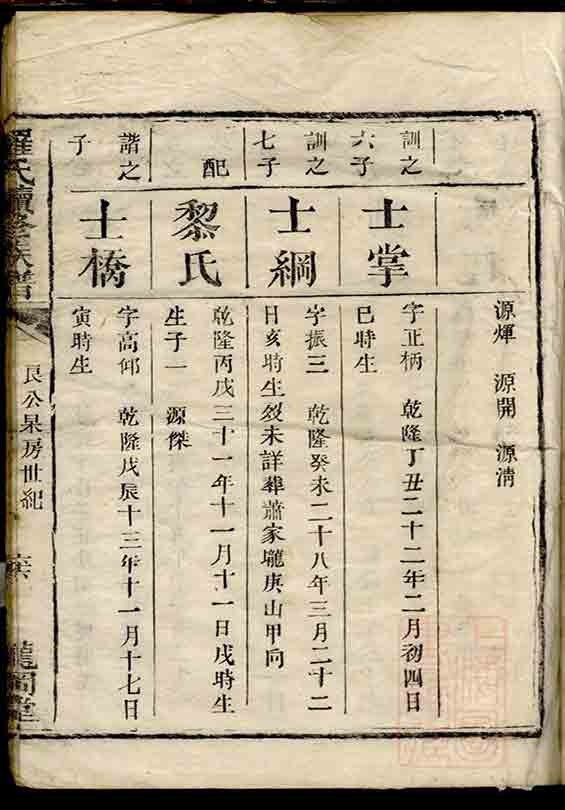 源煇 源開 源清
訓之
六子
士掌
字正柄 乾隆丁丑二十二年二月初四日
巳時生
訓之
七子
士綱
字振三 乾隆癸未二十八年三月二十二
日亥時生歿未詳葬蕭家壠庚山甲向
配
黎氏
乾隆丙戌三十一年十一月十一日戌時生
生子一 源傑
諧之
子
士橋
字高仰 乾隆戊辰十三年十一月十七日
寅時生
羅氏續修族譜
良公杲房世紀